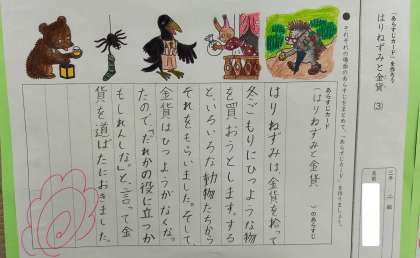 「あらすじカード」を作ろう
はりねずみと金貨 ③
●それぞれの場面のあらすじをまとめて、「あらすじカード」を作りましょう。
三年 二組
名前
あらすじカード
（はりねずみと金貨　）のあらすじ
はりねずみは金貨を拾って
冬ごもりにひつような物
を買おうとします。する
と、いろいろな動物たちから
それをもらいました。そして、
金貨はひつようがなくな
たので、「だれかの役に立つか
もしれんしな。」と、言って金
貨を道ばたにおきました。